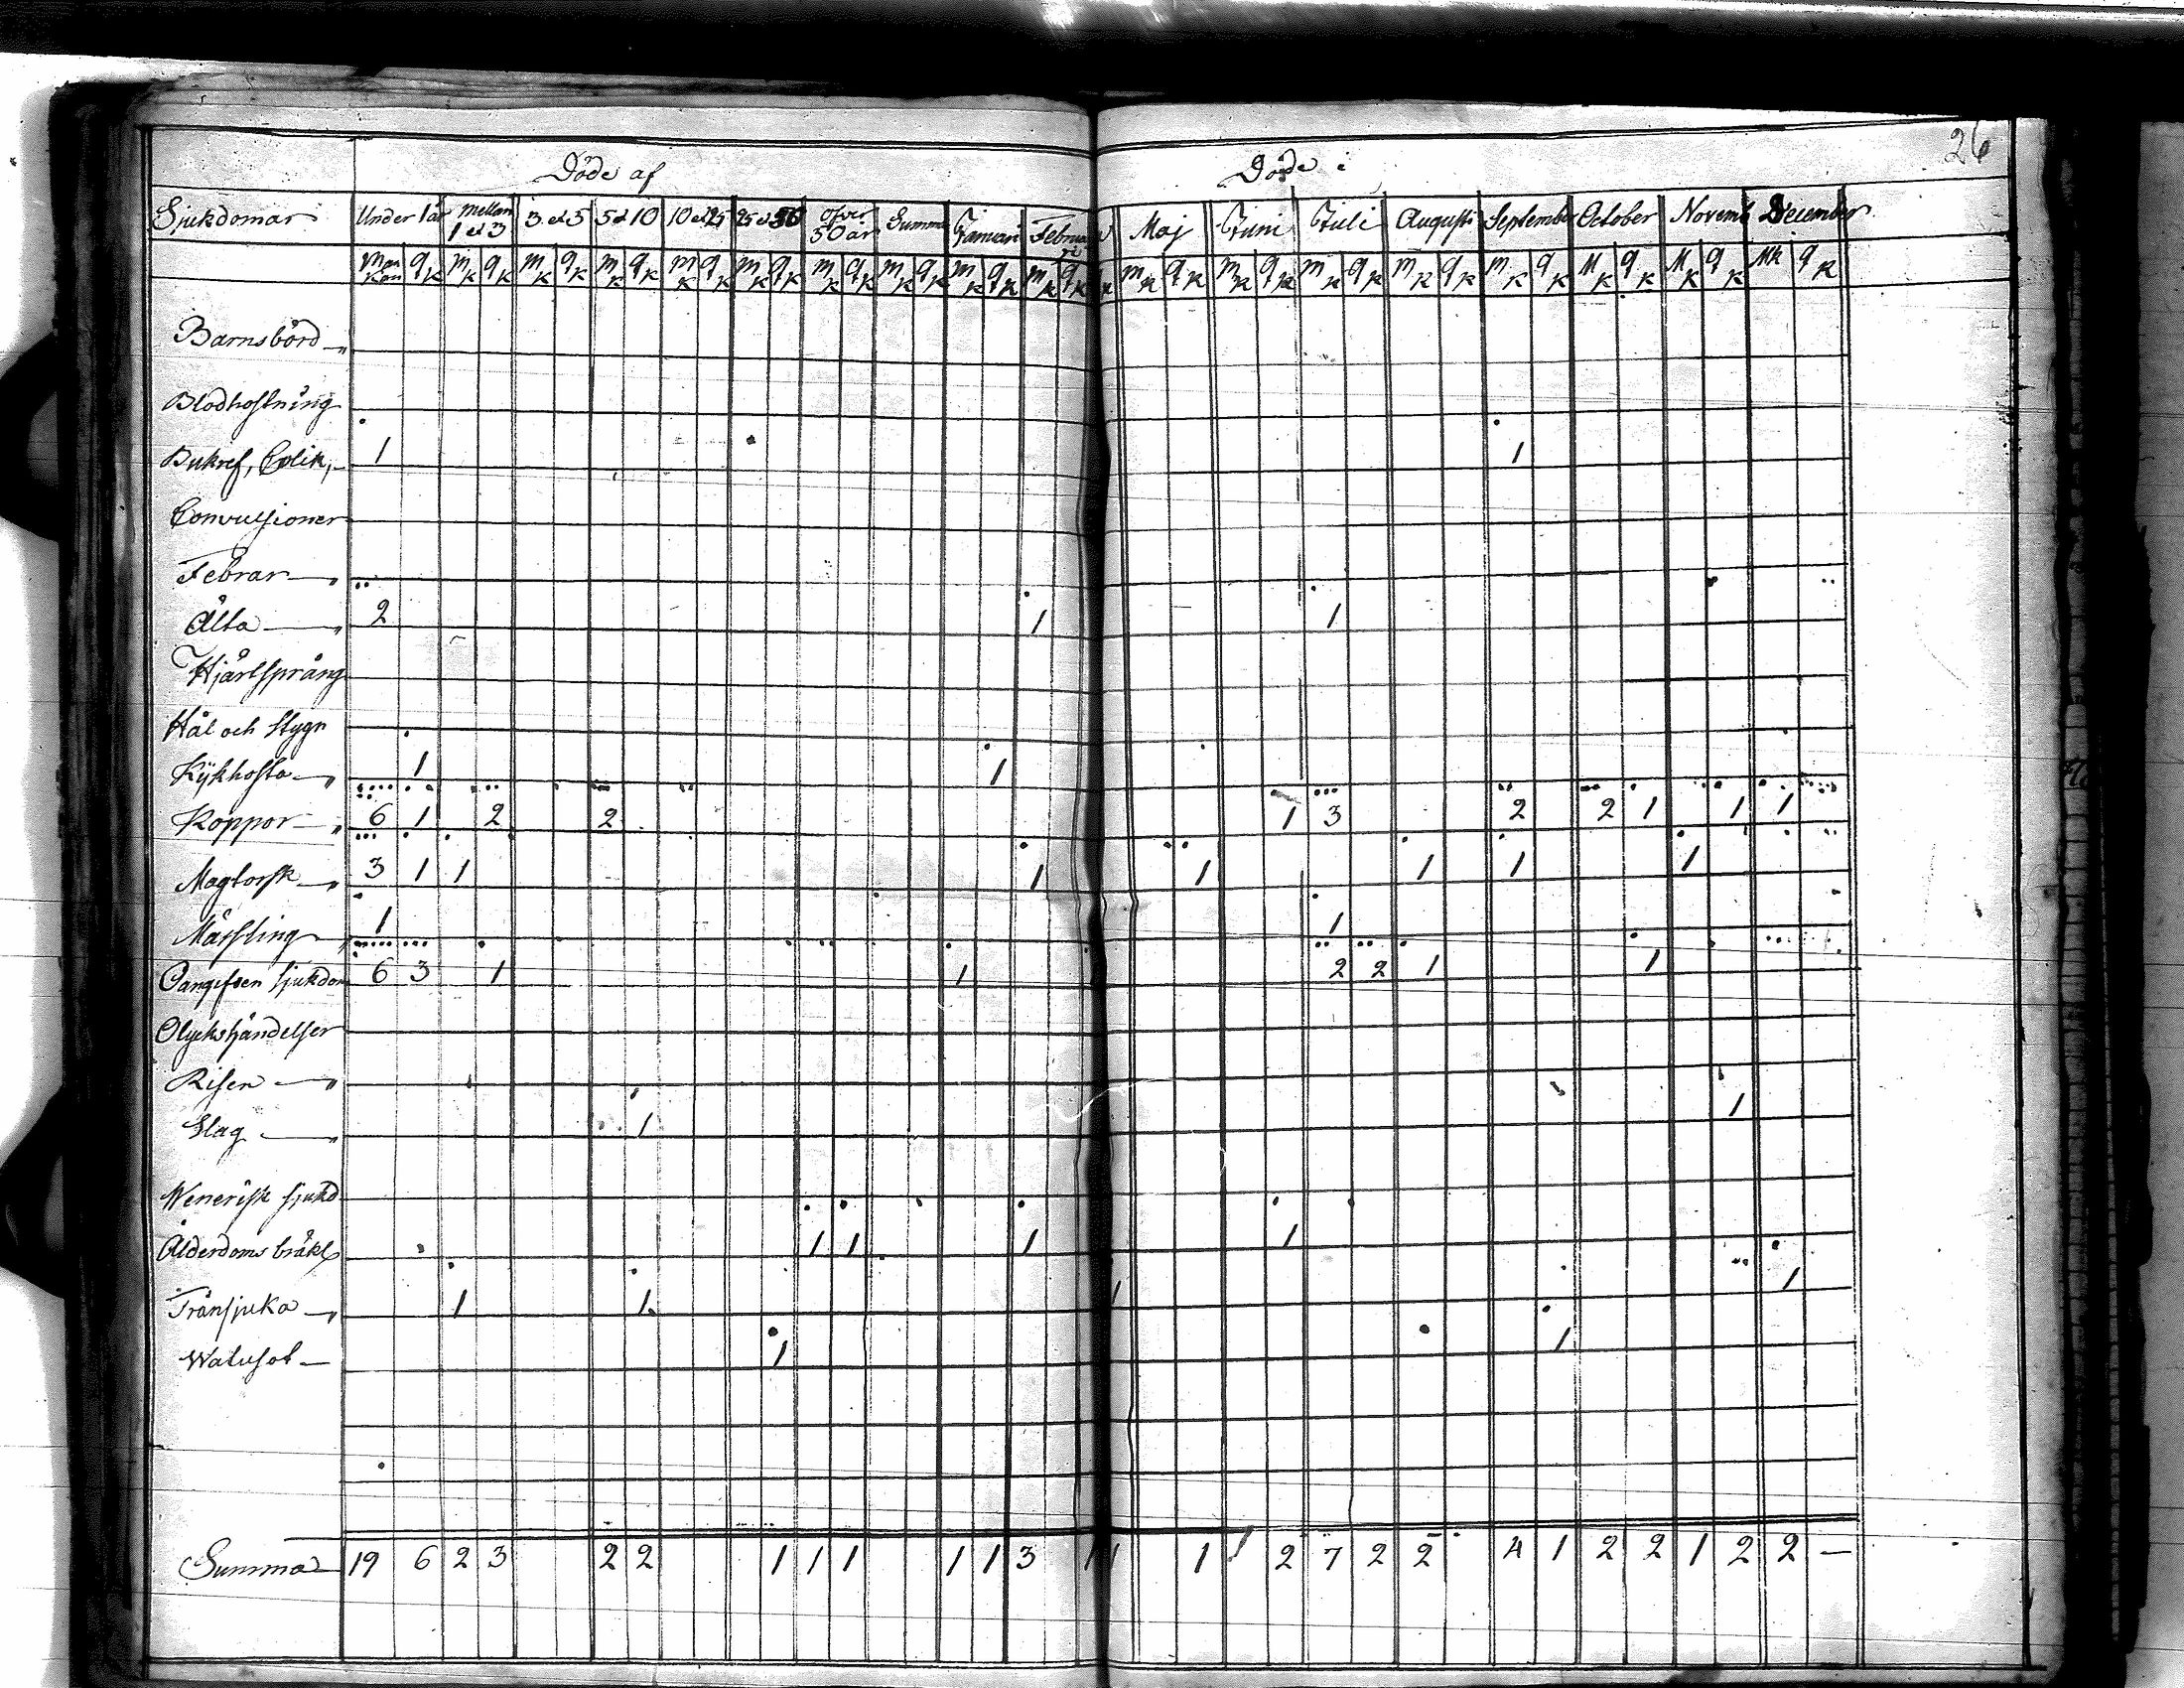 26
Döde af Döde i
Sjukdomar Under 1 år Mellan 1 et 3 3 et 5 5 et 10 10 et 25 25 et 50 öfver 50 år Summa Januari Maj Juni Juli Augusti September October Novemb December
M K Q K M K Q K M K Q K M K Q K M K Q K M K Q K M K Q K M K Q K M K Q K M K Q K K M K Q K M K Q K M K Q K M K Q K M K Q K M K Q K M K Q K MK Q K
Barnsbörd
Blodhostning
Bukref, Colik, 1 1
Convulsioner
Febrar
Älta 2 1 1
Hjärtsprång
Hål och Stygn
Kykhosta 1 1
Koppor 6 1 2 2 1 3 2 2 1 1 1
Magtorsk 3 1 1 1 1 1 1 1
Mässling 1 1
Oangifven Sjukdom 6 3 1 1 2 2 1 1
Olyckshändelser
Risen
Slag 1 1
Wenerisk sjukd
Ålderdoms bräkl 1 1 1 1
Tränsjuka 1 1 1 1
Watusot 1 1
Summa 19 6 2 3 2 2 1 1 1 1 1 3 1 1 1 2 7 2 2 4 1 2 2 1 2 2 —